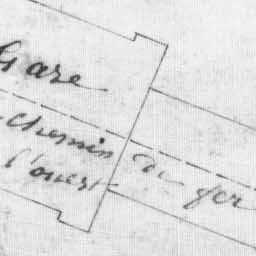 Gare
Chemin de fer
l'ouest